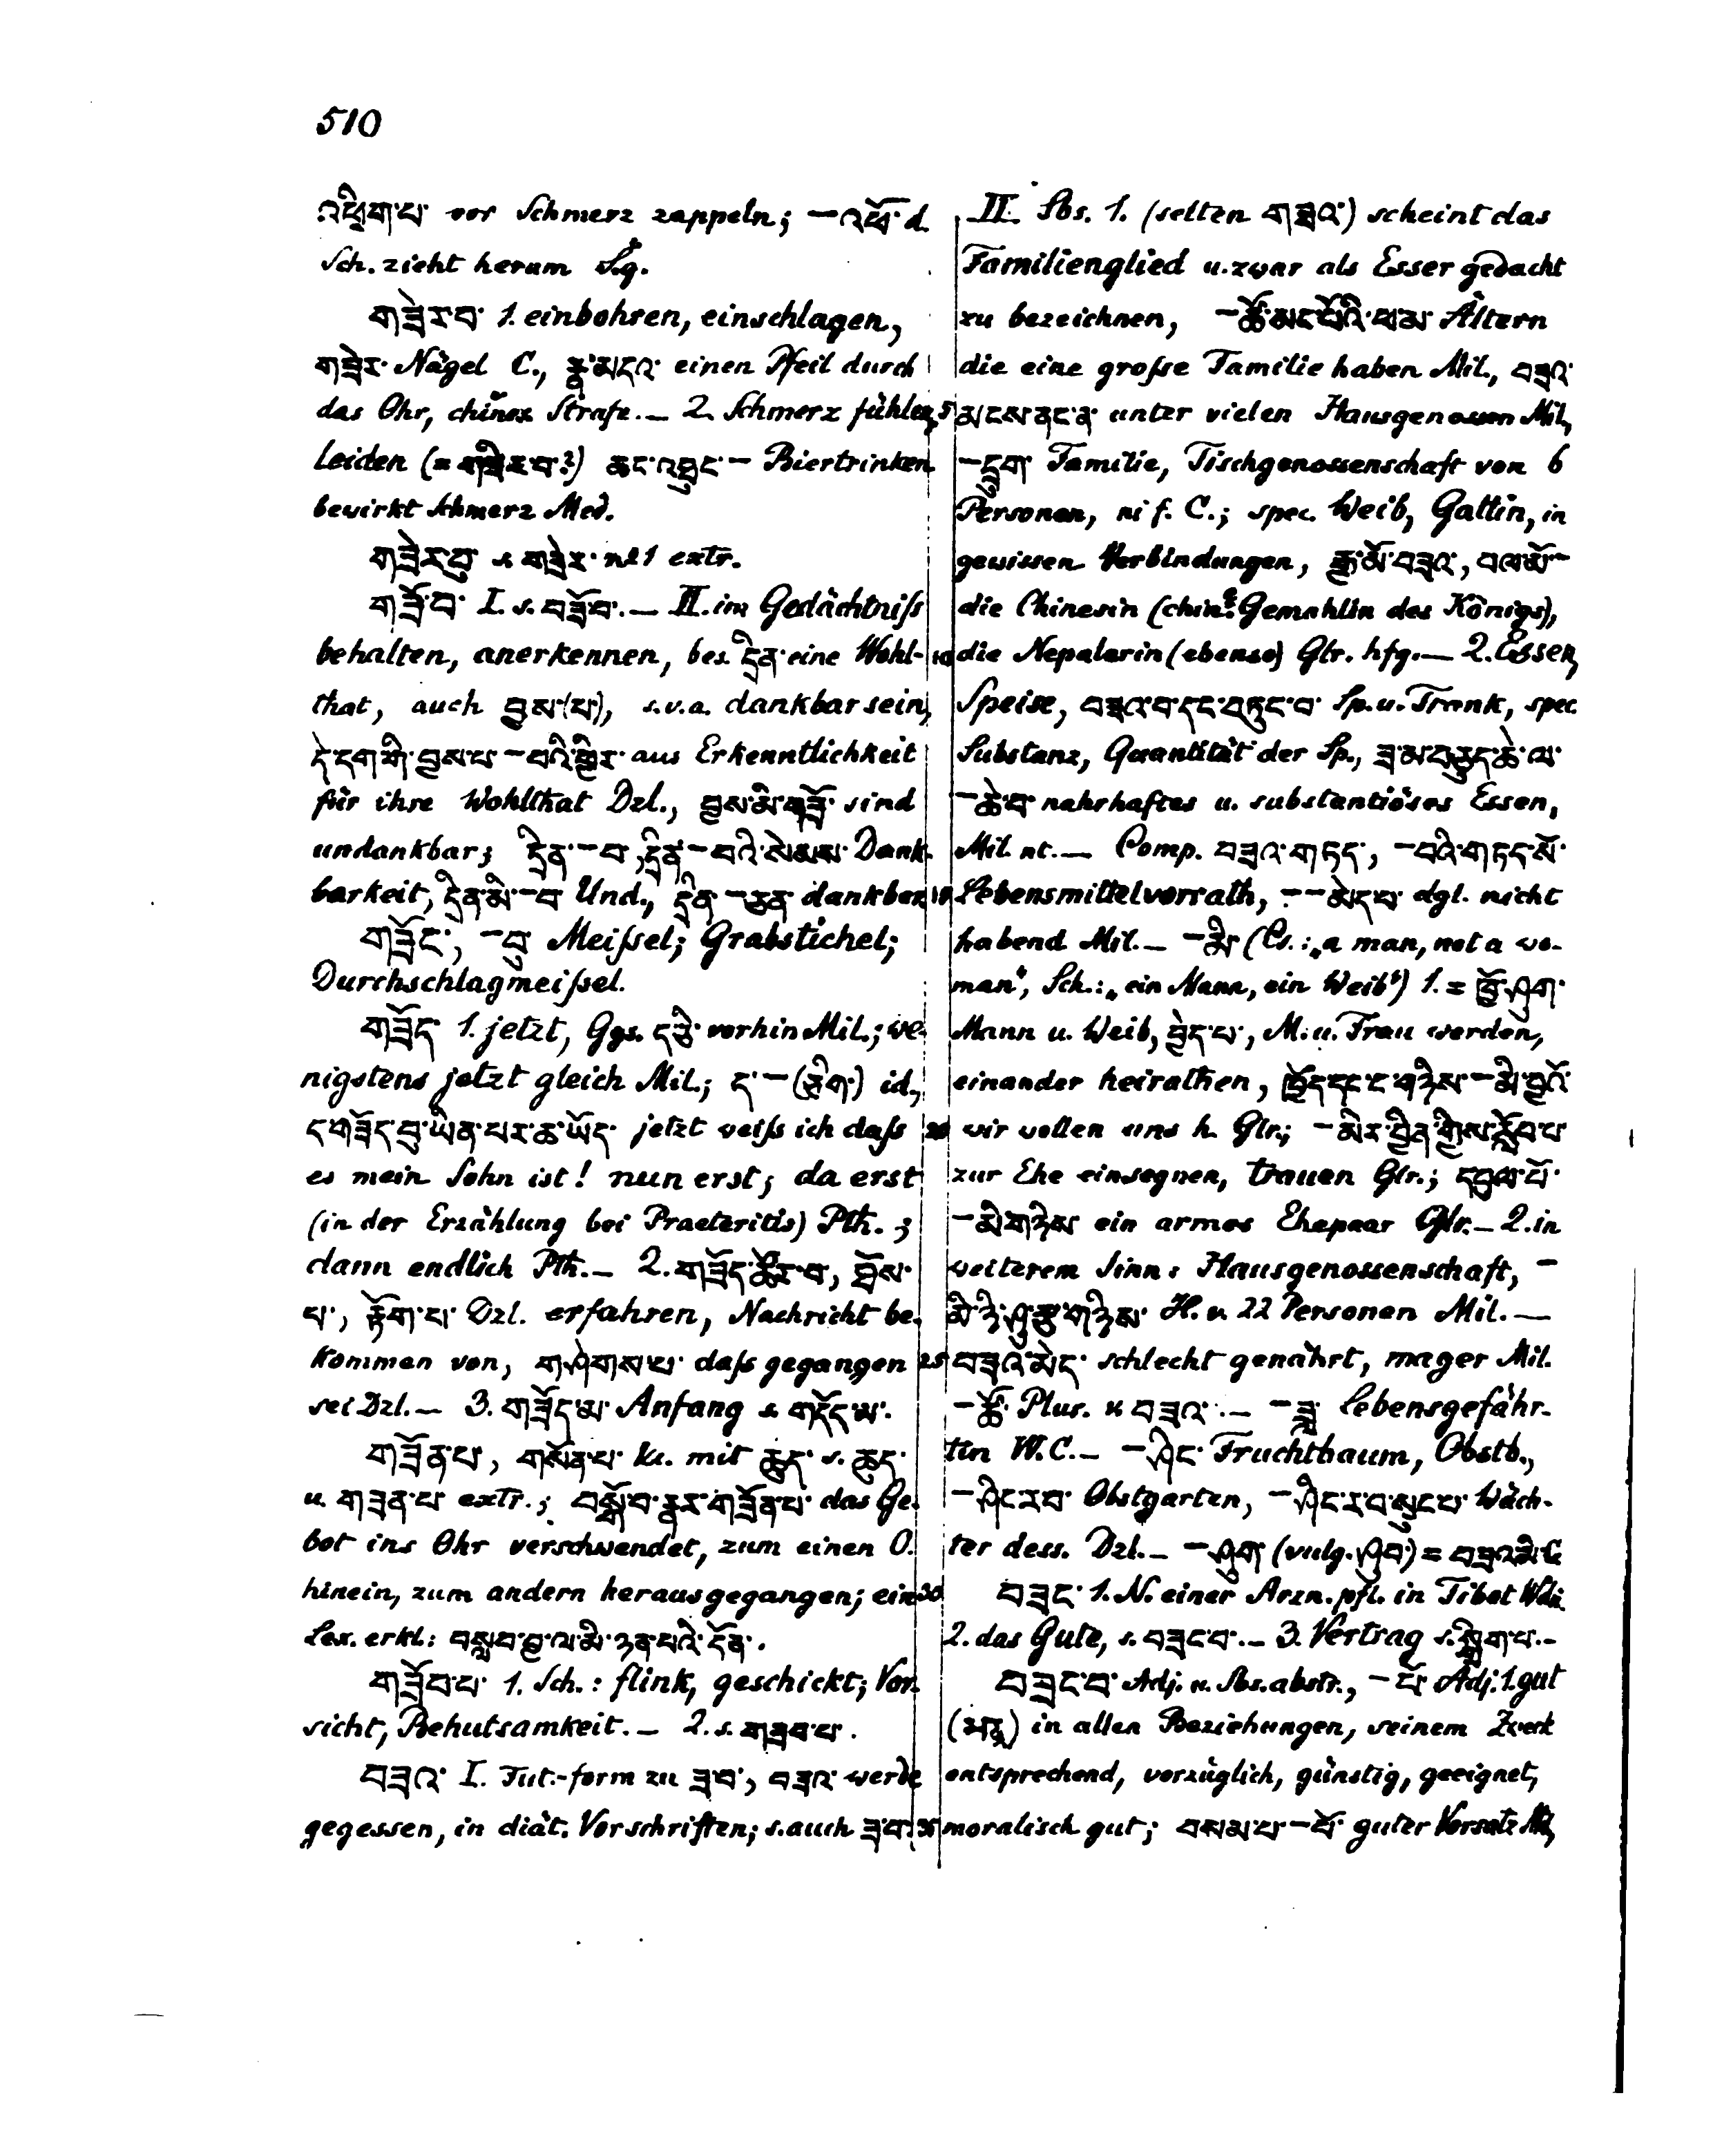 510
འཕྱིག་པ་ vor Schmerz zappeln; — འཕྱོ་ d.
Sch. zieht herum S.g.
གཟེར་བ་ 1. einbohren, einschlagen,
གཟེར་ Nägel C., རྣ་མདའ་ einen Pfeil durch
das Ohr, chines. Strafe. — 2. Schmerz fühlen,
leiden (= གཟིར་བ་?) ཆང་འཐུང་ — Biertrinken
bewirkt Schmerz Med.
གཟེར་བུ་ s. གཟེར་ no 1 extr.
གཟོ་བ་ I. s. བཟོ་བ་. — II. im Gedächtniß
behalten, anerkennen, bes. དྲིན་ eine Wohl-
that, auch བྱས་(པ་), s.v.a. dankbar sein,
དེ་དག་གི་བྱས་པ་ — བའི་ཕྱིར་ aus Erkenntlichkeit
für ihre Wohlthat Dzl., བྱས་མི་གཟོ་ sind
undankbar; དྲིན་ — བ་, དྲིན་ — བའི་སེམས་ Dank-
barkeit, དྲིན་མི་ — བ་ Und., དྲིན་ — ཅན་ dankbar
གཟོང་, — བུ་ Meißel; Grabstichel;
Durchschlagmeißel.
གཟོད་ 1. jetzt, Ggs. ད་ཅི་ vorhin Mil.; we-
nigstens jetzt gleich Mil.; ད་ — (ཅིག་) id.,
ད་གཟོད་བུ་ཡིན་པར་ཆ་ཡོད་ jetzt weiß ich daß
es mein Sohn ist! nun erst; da erst
(in der Erzählung bei Praeteritis) Pth.;
dann endlich Pth. — 2. གཟོད་ཚོར་བ་, ཐོས་
པ་, རྟོག་པ་ Dzl. erfahren, Nachricht be-
kommen von, གཤེགས་པ་ daß gegangen
sei Dzl. — 3. གཟོད་མ་ Anfang s. གདོད་མ་.
གཟོན་པ་, གསོན་པ་ Ks. mit ཆུད་ s. ཆུད་
u. གཟན་པ་ extr.; བསྒོ་བ་རྣར་གཟོན་པ་ das Ge-
bot ins Ohr verschwendet, zum einen O.
hinein, zum andern herausgegangen; ein
Lex. erkl: བསླབ་བྱ་ལ་མི་ཉན་པའི་དོན་.
གཟོབ་པ་ 1. Sch.: flink, geschickt; Vor-
sicht, Behutsamkeit. — 2. s. གཟབ་པ་.
བཟའ་ I. Fut.-form zu ཟ་བ་, བཟའ་ werde
gegessen, in diät. Vorschriften; s. auch ཟ་བ་.
II. Sbs. 1. (selten གཟའ་) scheint das
Familienglied u. zwar als Esser gedacht
zu bezeichnen, — ཚོ་མང་པོའི་ཕ་མ་ Ältern
die eine große Familie haben Mil., བཟའ་
5 མངས་ནང་ན་ unter vielen Hausgenossen Mil.,
— དྲུག་ Familie, Tischgenossenschaft von 6
Personen, ni f. C.; spec. Weib, Gattin, in
gewissen Verbindungen, རྒྱ་མོ་བཟའ་, བལ་མོ་ —
die Chinesin (chin. Gemahlin des Königs),
10 die Nepalerin (ebenso) Glr. hfg. — 2. Essen,
Speise, བཟའ་བ་དང་བཏུང་བ་ Sp. u. Trank, spec.
Substanz, Quantität der Sp., ཟ་མ་བཅུད་ཆེ་ལ་
— ཆེ་བ་ nahrhaftes u. substantiöses Essen,
Mil. nt. — Comp. བཟའ་གཏད་, — བའི་གཏད་སོ་
15 Lebensmittelvorrath, — — མེད་པ་ dgl. nicht
habend Mil. — — མི་ (Cs.: „a man, not a wo-
man“, Sch.: „ein Mann, ein Weib“) 1. = ཁྱོ་ཤུག་
Mann u. Weib, བྱེད་པ་, M. u. Frau werden,
einander heirathen, ཁྱོད་དང་ང་གཉིས་ — མི་བྱའོ་
20 wir wollen uns h. Glr.; — མིར་བྱིན་གྱིས་རློབ་པ་
zur Ehe einsegnen, trauen Glr.; དབུལ་པོ་
— མི་གཉིས་ ein armes Ehepaar Glr. — 2. in
weiterem Sinn: Hausgenossenschaft, —
མི་ཉི་ཤུ་རྩ་གཉིས་ H. v. 22 Personen Mil. —
25 བཟའ་མེད་ schlecht genährt, mager Mil.
— ཚོ་ Plur. v. བཟའ་. — — ཟླ་ Lebensgefähr-
tin W.C. — — ཤིང་ Fruchtbaum, Obstb.,
— ཤིང་ར་བ་ Obstgarten, — ཤིང་ར་བ་སྲུང་བ་ Wäch-
ter dess. Dzl. — — ཤུག་ (vulg. ཤུབ་) = བཟའ་མི་ C.
30 བཟང་ 1. N. einer Arzn. pfl. in Tibet Wdn.
2. das Gute, s. བཟང་བ་. — 3. Vertrag s. སྒྲིག་པ་. —
བཟང་བ་ Adj. u. Sbs. abstr., — པོ་ Adj. 1. gut
(भद्र) in allen Beziehungen, seinem Zweck
entsprechend, vorzüglich, günstig, geeignet,
35 moralisch gut; བསམ་པ་ — པོ་ guter Vorsatz Mil.,